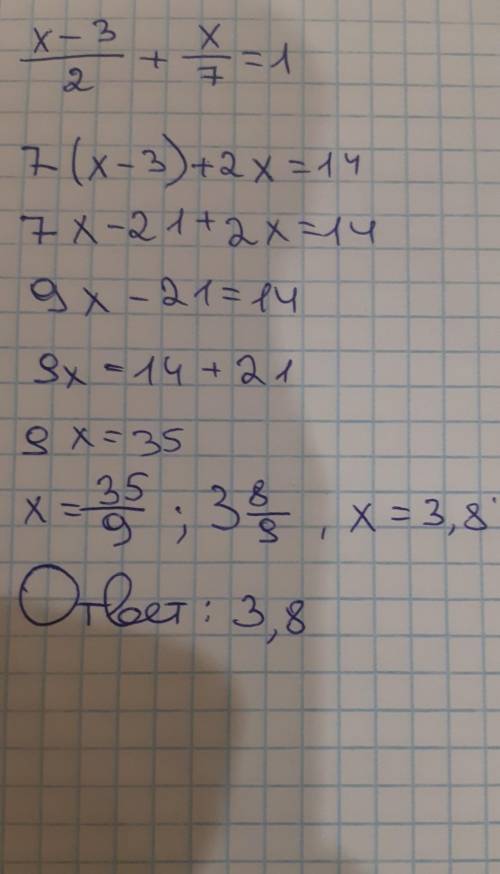 x-3/2 + x/7 = 1
7(x-3)+2x=14
7x-21+2x=14
9x-21=14
9x=14+21
9x=35
x=35/9; 3 8/9, x=3,8
Ответ: 3,8